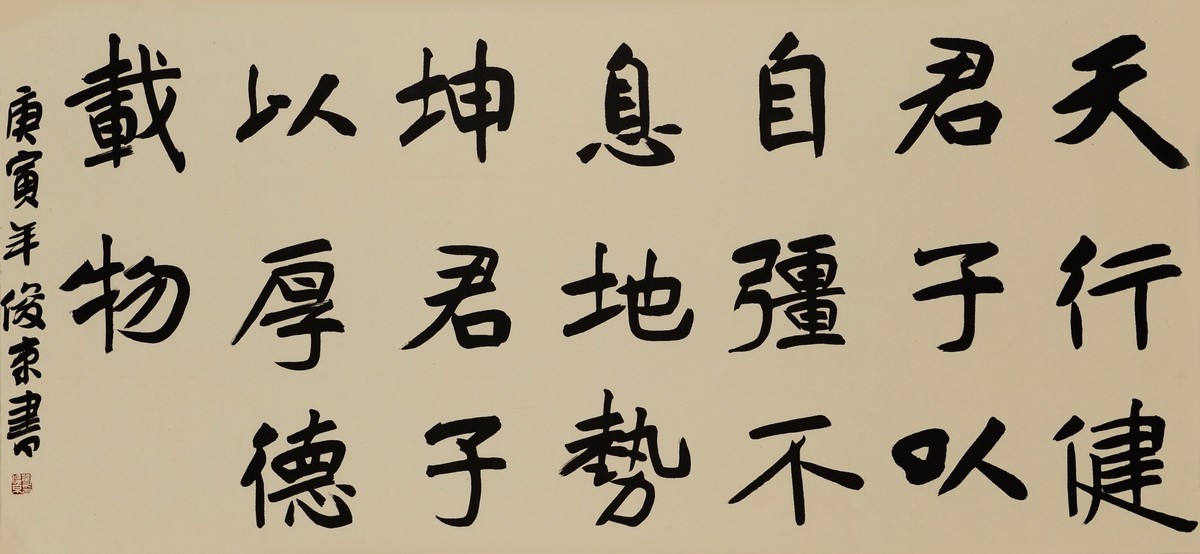 天行健
君子以
自彊不
息地勢
坤君子
以厚德
載物
庚寅年俊東書